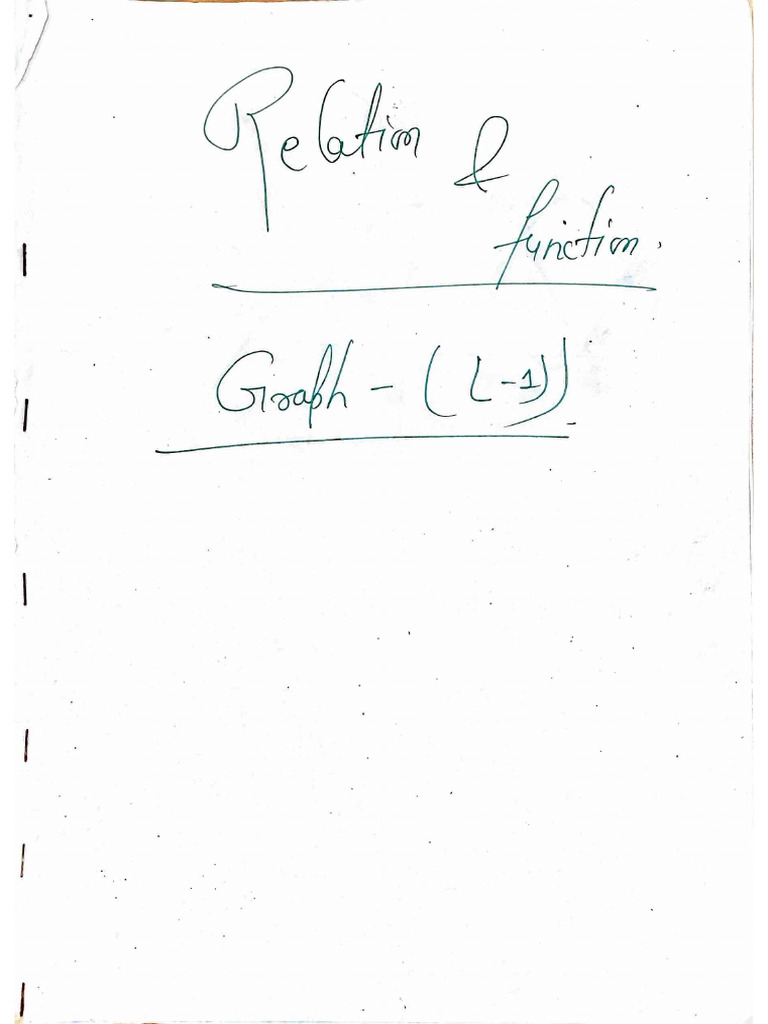 Relation &
function.
Graph - (L-1)